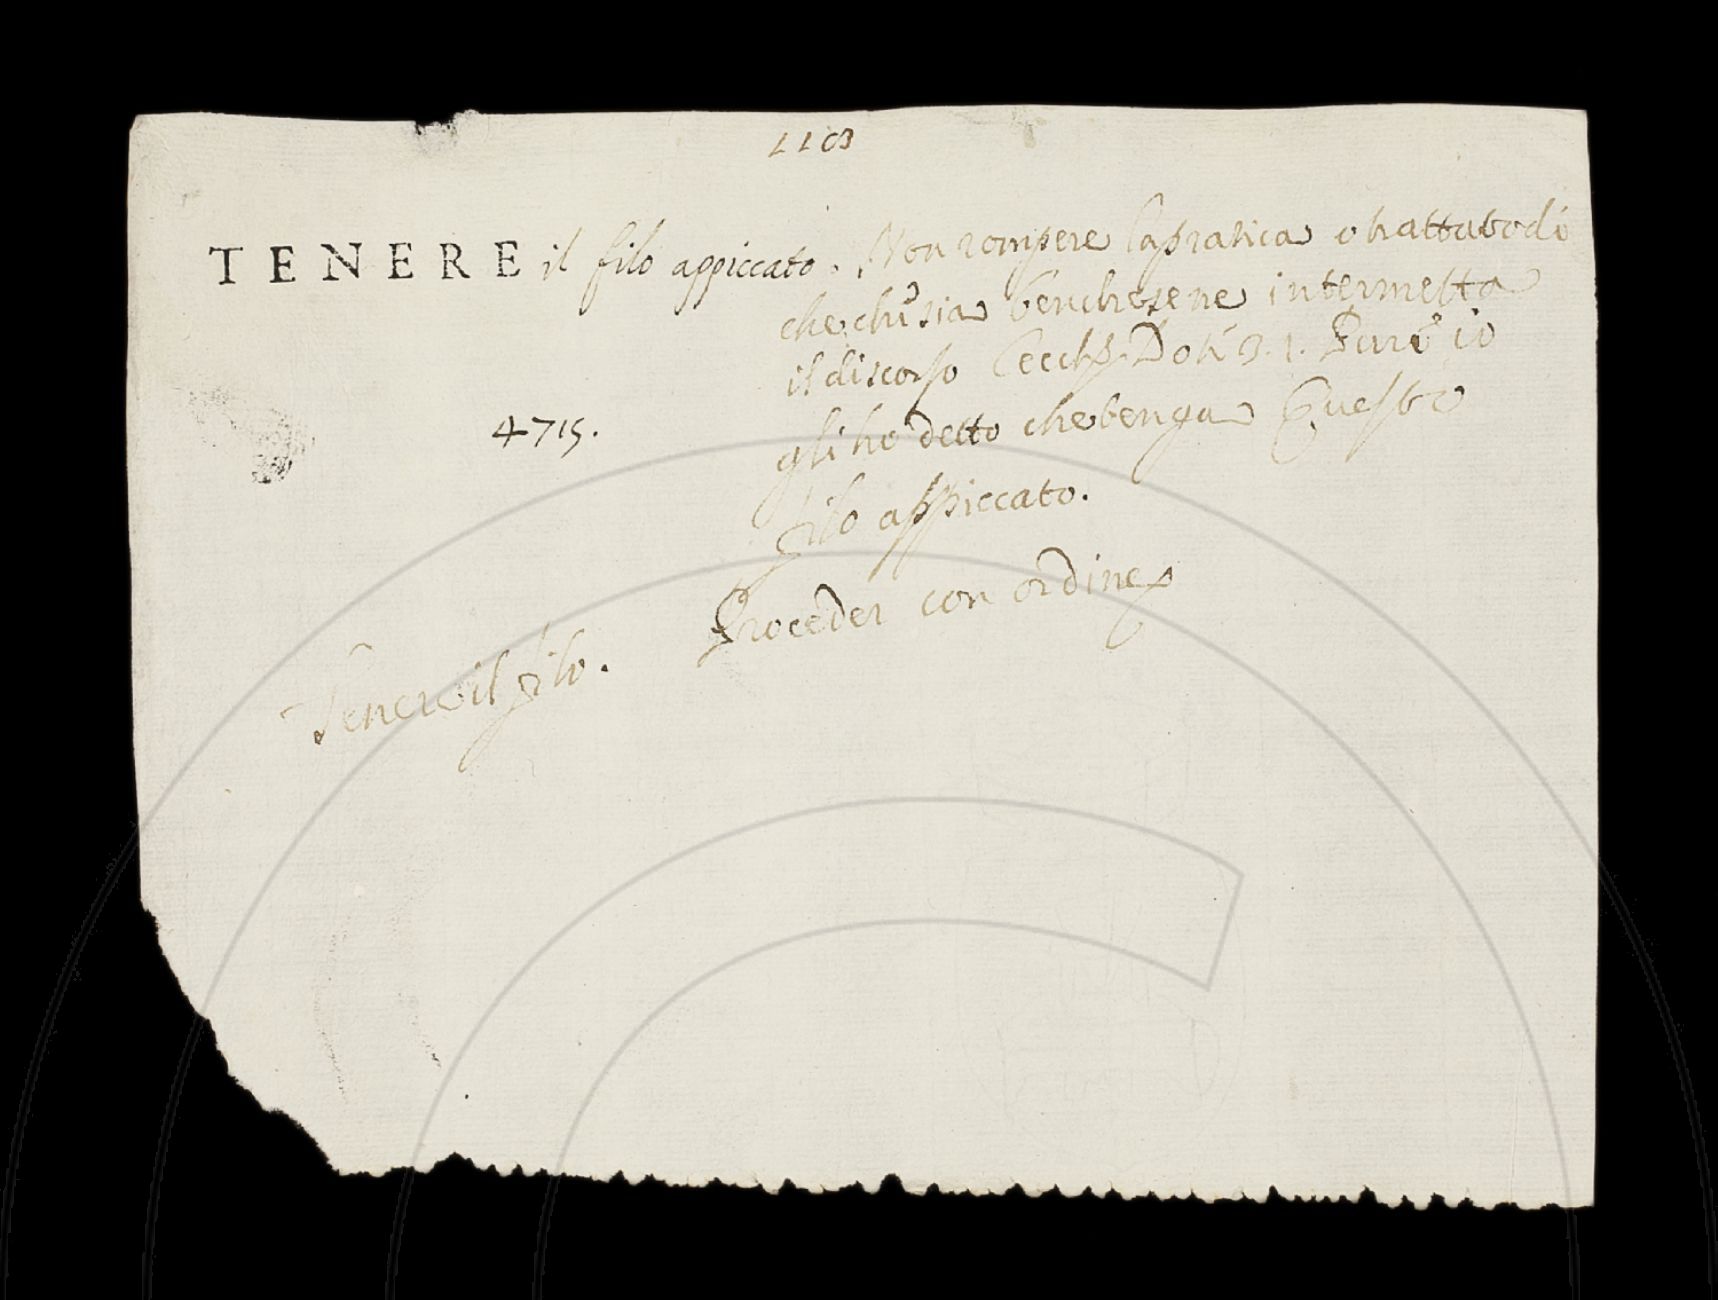 1103
TENERE il filo appiccato. Non rompere la pratica o trattato di
che chi sia benche se ne intermetta
il discorso Cecch. Dot. 3. 1. Pure io
gli ho detto che tenga Questo
filo appiccato.
4715.
Proceder con ordine
Tenere il filo.